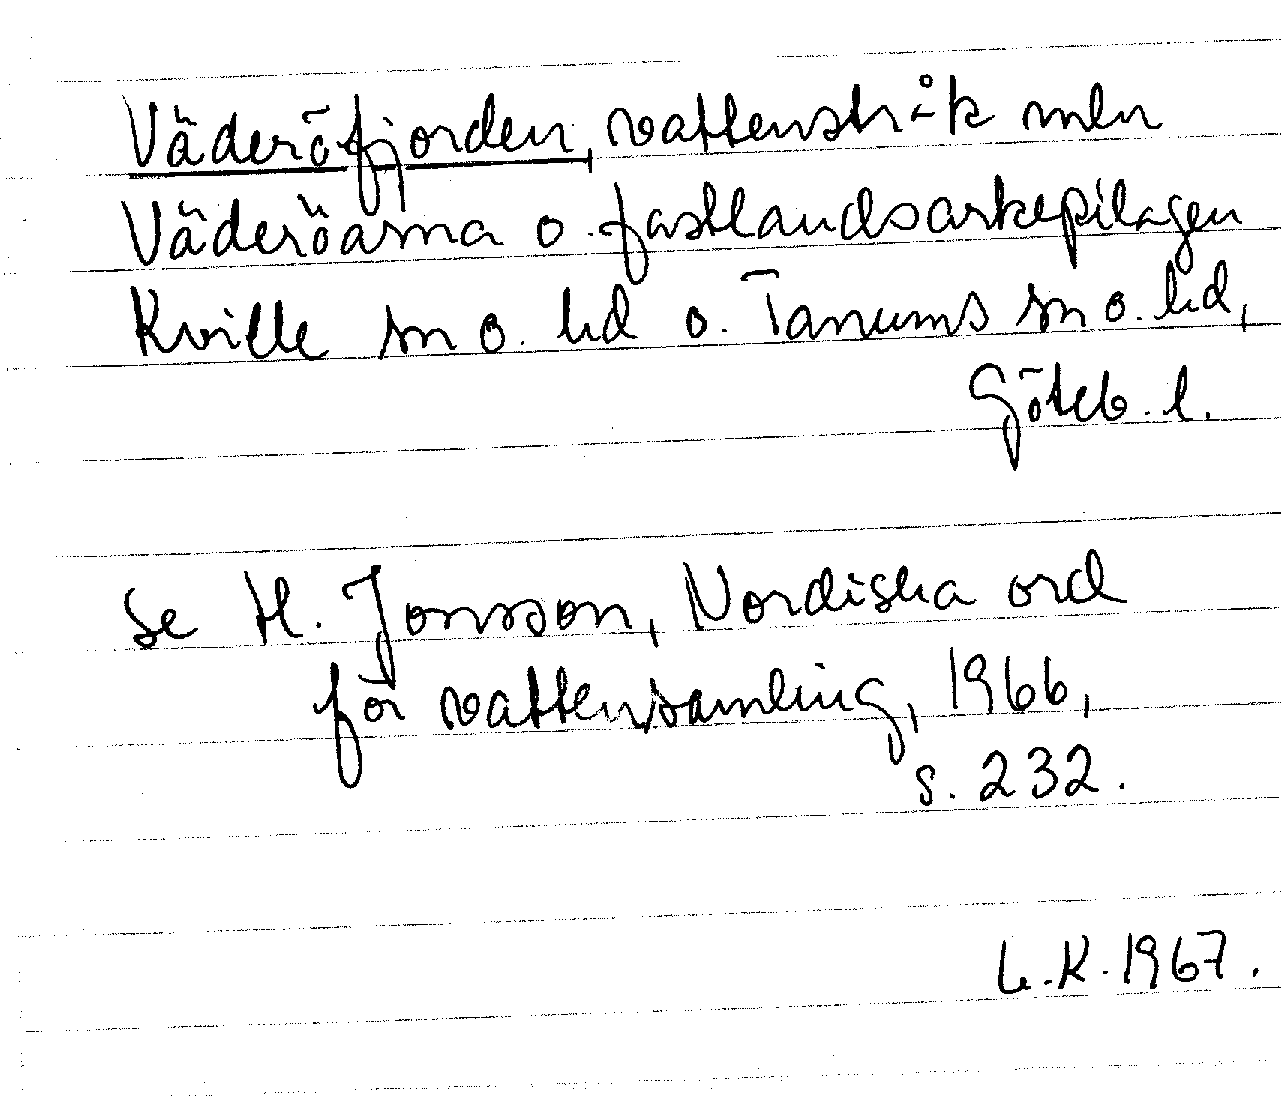 Väderöfjorden, vattenstråk mln
Väderöarna o. fastlandsarkepilagen
Kville sn o. hd o. Tanums sn o. hd,
Göteb. l.
se H. Jonsson, Nordiska ord
för vattensamling, 1966,
s. 232.
L.K. 1967.